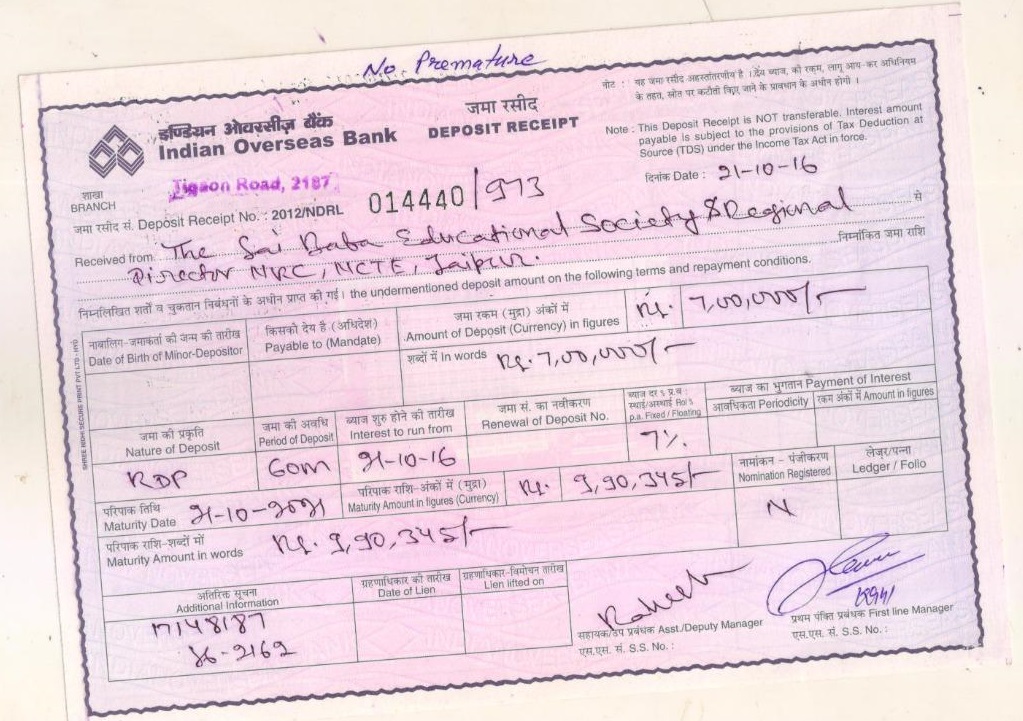 No Premature
नोट : यह जमा रसीद अहस्तांतरणीय है । देय ब्याज, की रकम, लागू आय-कर अधिनियम
के तहत, स्रोत पर कटौती किए जाने के प्रावधान के अधीन होगी ।
जमा रसीद
इण्डियन ओवरसीज़ बैंक
DEPOSIT RECEIPT
Indian Overseas Bank
Note : This Deposit Receipt is NOT transferable. Interest amount
payable is subject to the provisions of Tax Deduction at
Source (TDS) under the Income Tax Act in force.
दिनांक Date : 21-10-16
शाखा
BRANCH
Tigaon Road, 2187
जमा रसीद सं. Deposit Receipt No. : 2012/NDRL 014440/973
Received from The Sai Baba Educational Society & Regional से
Director NRC, NCTE, Jaipur. निम्नांकित जमा राशि
निम्नलिखित शर्तों व चुकतान निबंधनों के अधीन प्राप्त की गई। the undermentioned deposit amount on the following terms and repayment conditions.
नाबालिग-जमाकर्ता की जन्म की तारीख
Date of Birth of Minor-Depositor
किसको देय है (अधिदेश)
Payable to (Mandate)
जमा रकम (मुद्रा) अंकों में
Amount of Deposit (Currency) in figures
Rs. 7,00,000/-
शब्दों में In words Rs. 7,00,000/-
जमा की प्रकृति
Nature of Deposit
जमा की अवधि
Period of Deposit
ब्याज शुरु होने की तारीख
Interest to run from
जमा सं. का नवीकरण
Renewal of Deposit No.
ब्याज दर % प्र.व :
स्थाई/अस्थाई RoI %
p.a. Fixed / Floating
ब्याज का भुगतान Payment of Interest
आवधिकता Periodicity
रकम अंकों में Amount in figures
RDP
60m
21-10-16
7%
परिपाक तिथि
Maturity Date 21-10-2021
परिपाक राशि-अंकों में (मुद्रा)
Maturity Amount in figures (Currency)
Rs. 9,90,345/-
नामांकन - पंजीकरण
Nomination Registered
लेजर/पन्ना
Ledger / Folio
N
परिपाक राशि-शब्दों में
Maturity Amount in words Rs. 9,90,345/-
अतिरिक्त सूचना
Additional Information
ग्रहणाधिकार की तारीख
Date of Lien
ग्रहणाधिकार-विमोचन तारीख
Lien lifted on
17148187
सहायक/उप प्रबंधक Asst./Deputy Manager
एस.एस. सं. S.S. No. :
प्रथम पंक्ति प्रबंधक First line Manager
एस.एस. सं. S.S. No. :
SHREE NIDHI SECURE PRINT PVT LTD - HYD